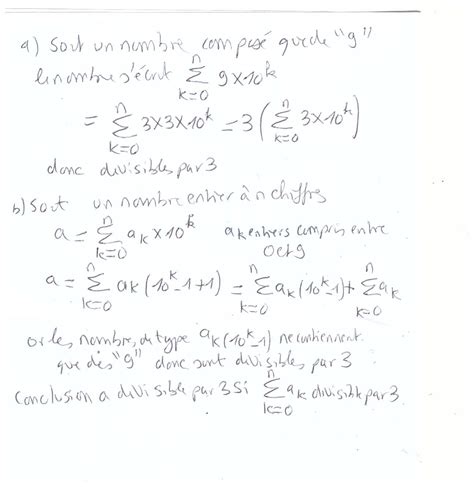 a) Soit un nombre composé que de "9"
le nombre s'écrit \sum_{k=0}^{n} 9×10^k
= \sum_{k=0}^{n} 3×3×10^k = 3 ( \sum_{k=0}^{n} 3×10^k )
donc divisible par 3
b) Soit un nombre entier à n chiffres
a = \sum_{k=0}^{n} a_k × 10^k   a_k entiers compris entre
0 et 9
a = \sum_{k=0}^{n} a_k (10^k - 1 + 1) = \sum_{k=0}^{n} a_k (10^k - 1) + \sum_{k=0}^{n} a_k
or les nombres du type a_k (10^k - 1) ne contiennent
que des "9" donc sont divisibles par 3
Conclusion a divisible par 3 si \sum_{k=0}^{n} a_k divisible par 3.